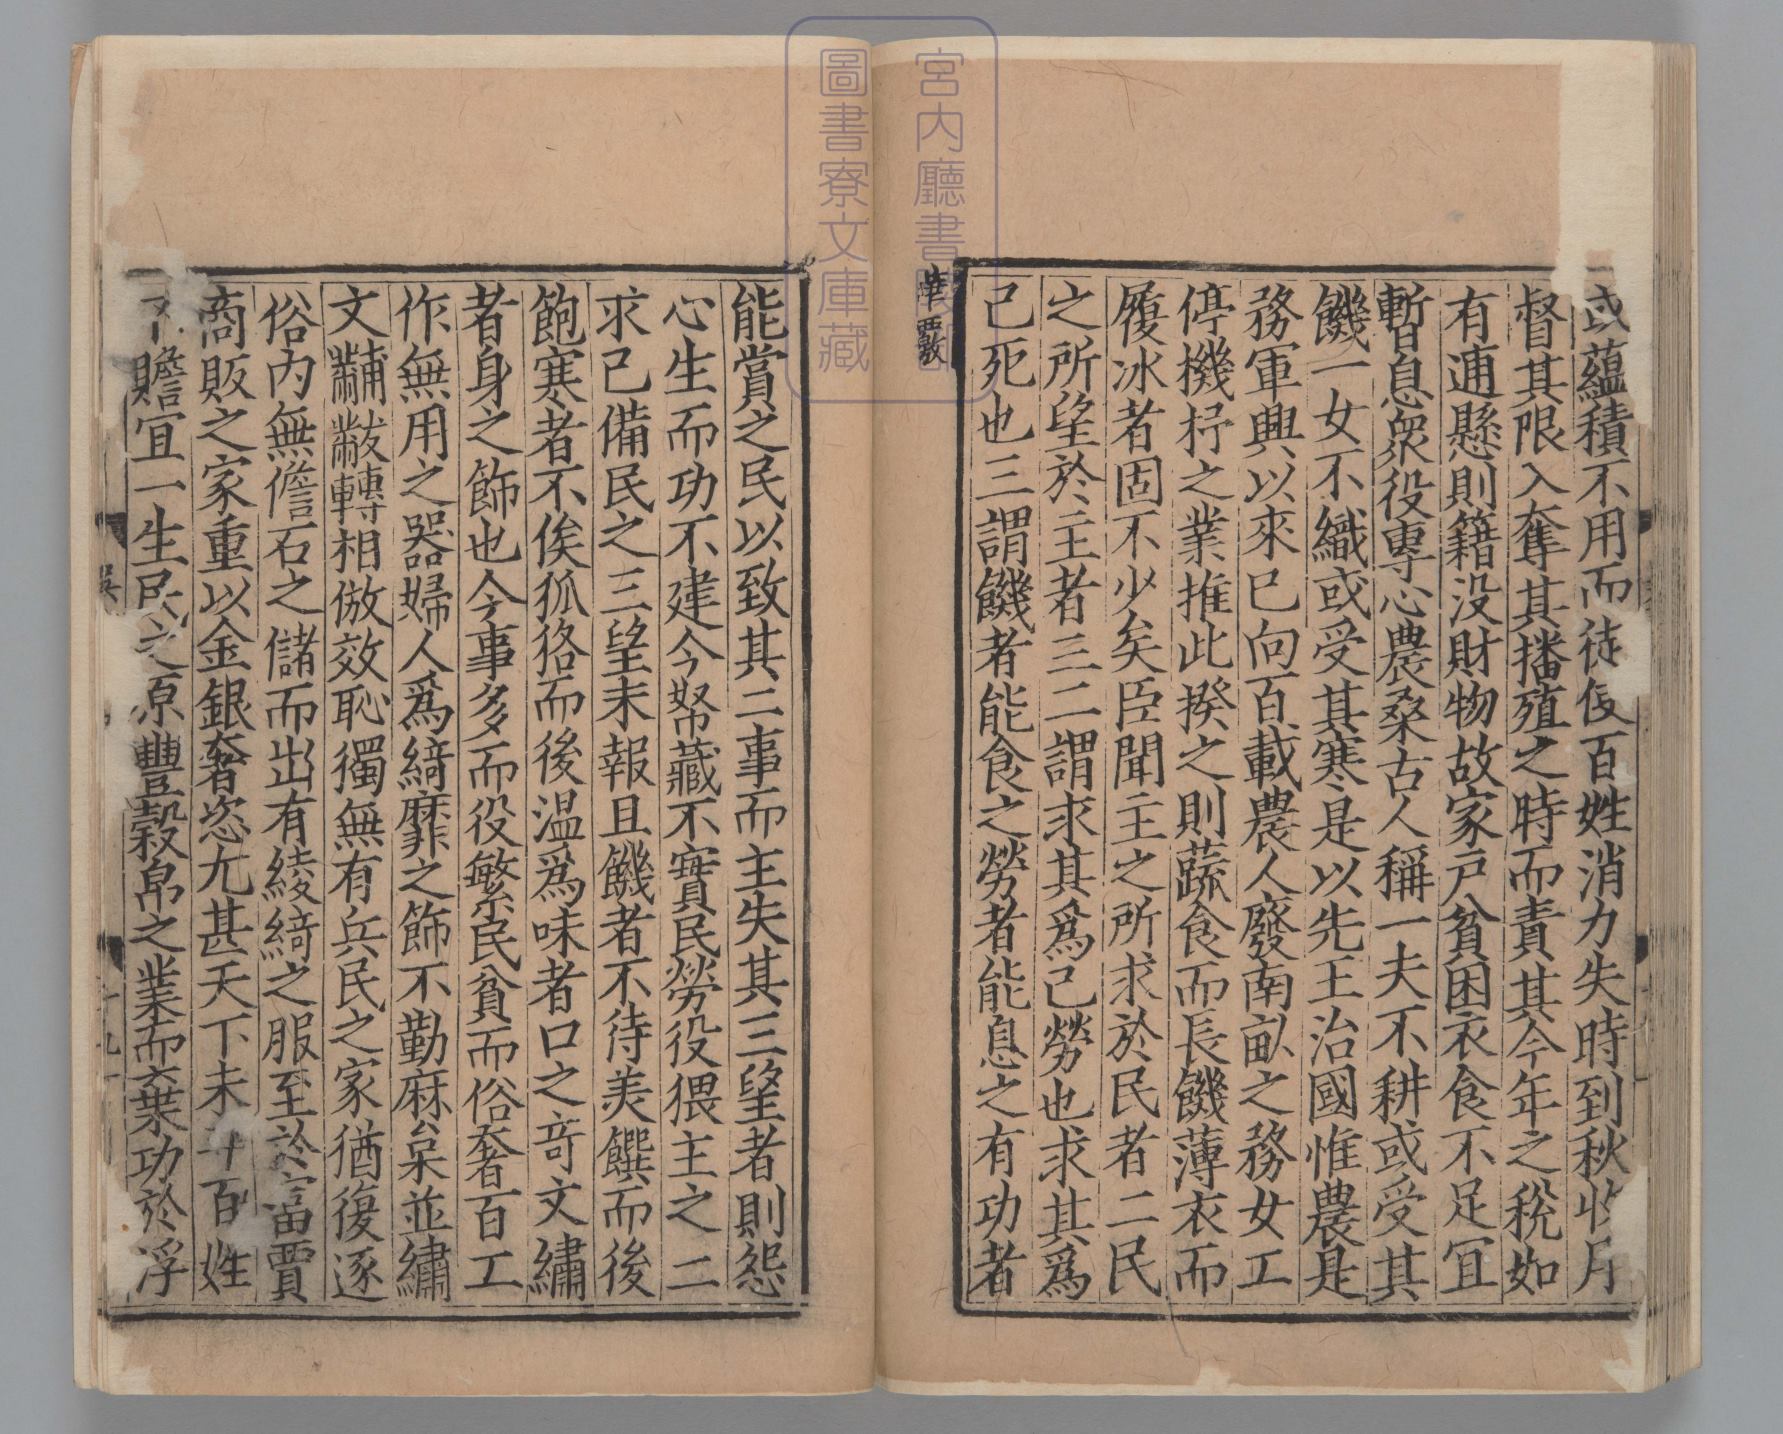 或蘊積不用而徒使百姓消力失時到秋收月
督其限入奪其播殖之時而責其今年之稅如
有逋懸則籍沒財物故家戶貧困衣食不足宜
暫息衆役專心農桑古人稱一夫不耕或受其
饑一女不織或受其寒是以先王治國惟農是
務軍興以來已向百載農人廢南畝之務女工
停機杼之業推此揆之則蔬食而長饑薄衣而
履冰者固不少矣臣聞主之所求於民者二民
之所望於主者三二謂求其爲己勞也求其爲
己死也三謂饑者能食之勞者能息之有功者
華覈
能賞之民以致其二事而主失其三望者則怨
心生而功不建今帑藏不實民勞役猥主之二
求已備民之三望未報且饑者不待美饌而後
飽寒者不俟狐狢而後温爲味者口之竒文繡
者身之飾也今事多而役繁民貧而俗奢百工
作無用之器婦人爲綺靡之飾不勤麻枲並繡
文黼黻轉相倣效恥獨無有兵民之家猶復逐
俗内無儋石之儲而出有綾綺之服至於富賈
商販之家重以金銀奢恣尤甚天下未平百姓
不贍宜一生民之原豐穀帛之業而棄功於浮
宮内廳書陵部
圖書寮文庫藏